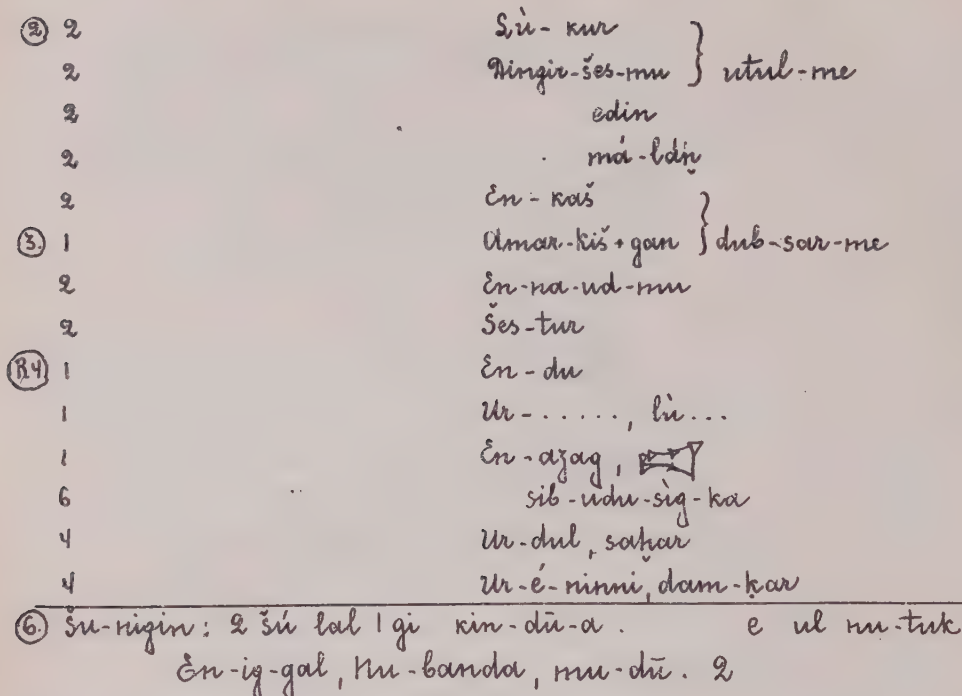 ② 2 Lù-kur } utul-me
2 Dingir-šes-mu
2 edin
2 má-laḫ
2 En-kaš } dub-sar-me
③. 1 Amar-kiš+gan
2 En-na-ud-mu
2 Šes-tur
(R4) 1 En-du
1 Ur-....., lù...
1 En-azag,
6 sib-udu-sìg-ka
4 Ur-dul, saḫar
4 Ur-é-ninni, dam-ḳar
⑥. Šu-nigin: 2 šú lal 1 gi kin-dū-a. e ul nu-tuk
En-ig-gal, Nu-banda, mu-dū. 2